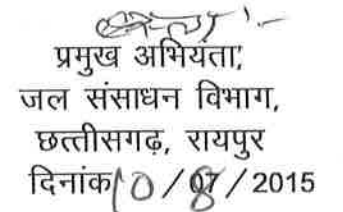 प्रमुख अभियंता,
जल संसाधन विभाग,
छत्तीसगढ़, रायपुर
दिनांक 10/08/2015